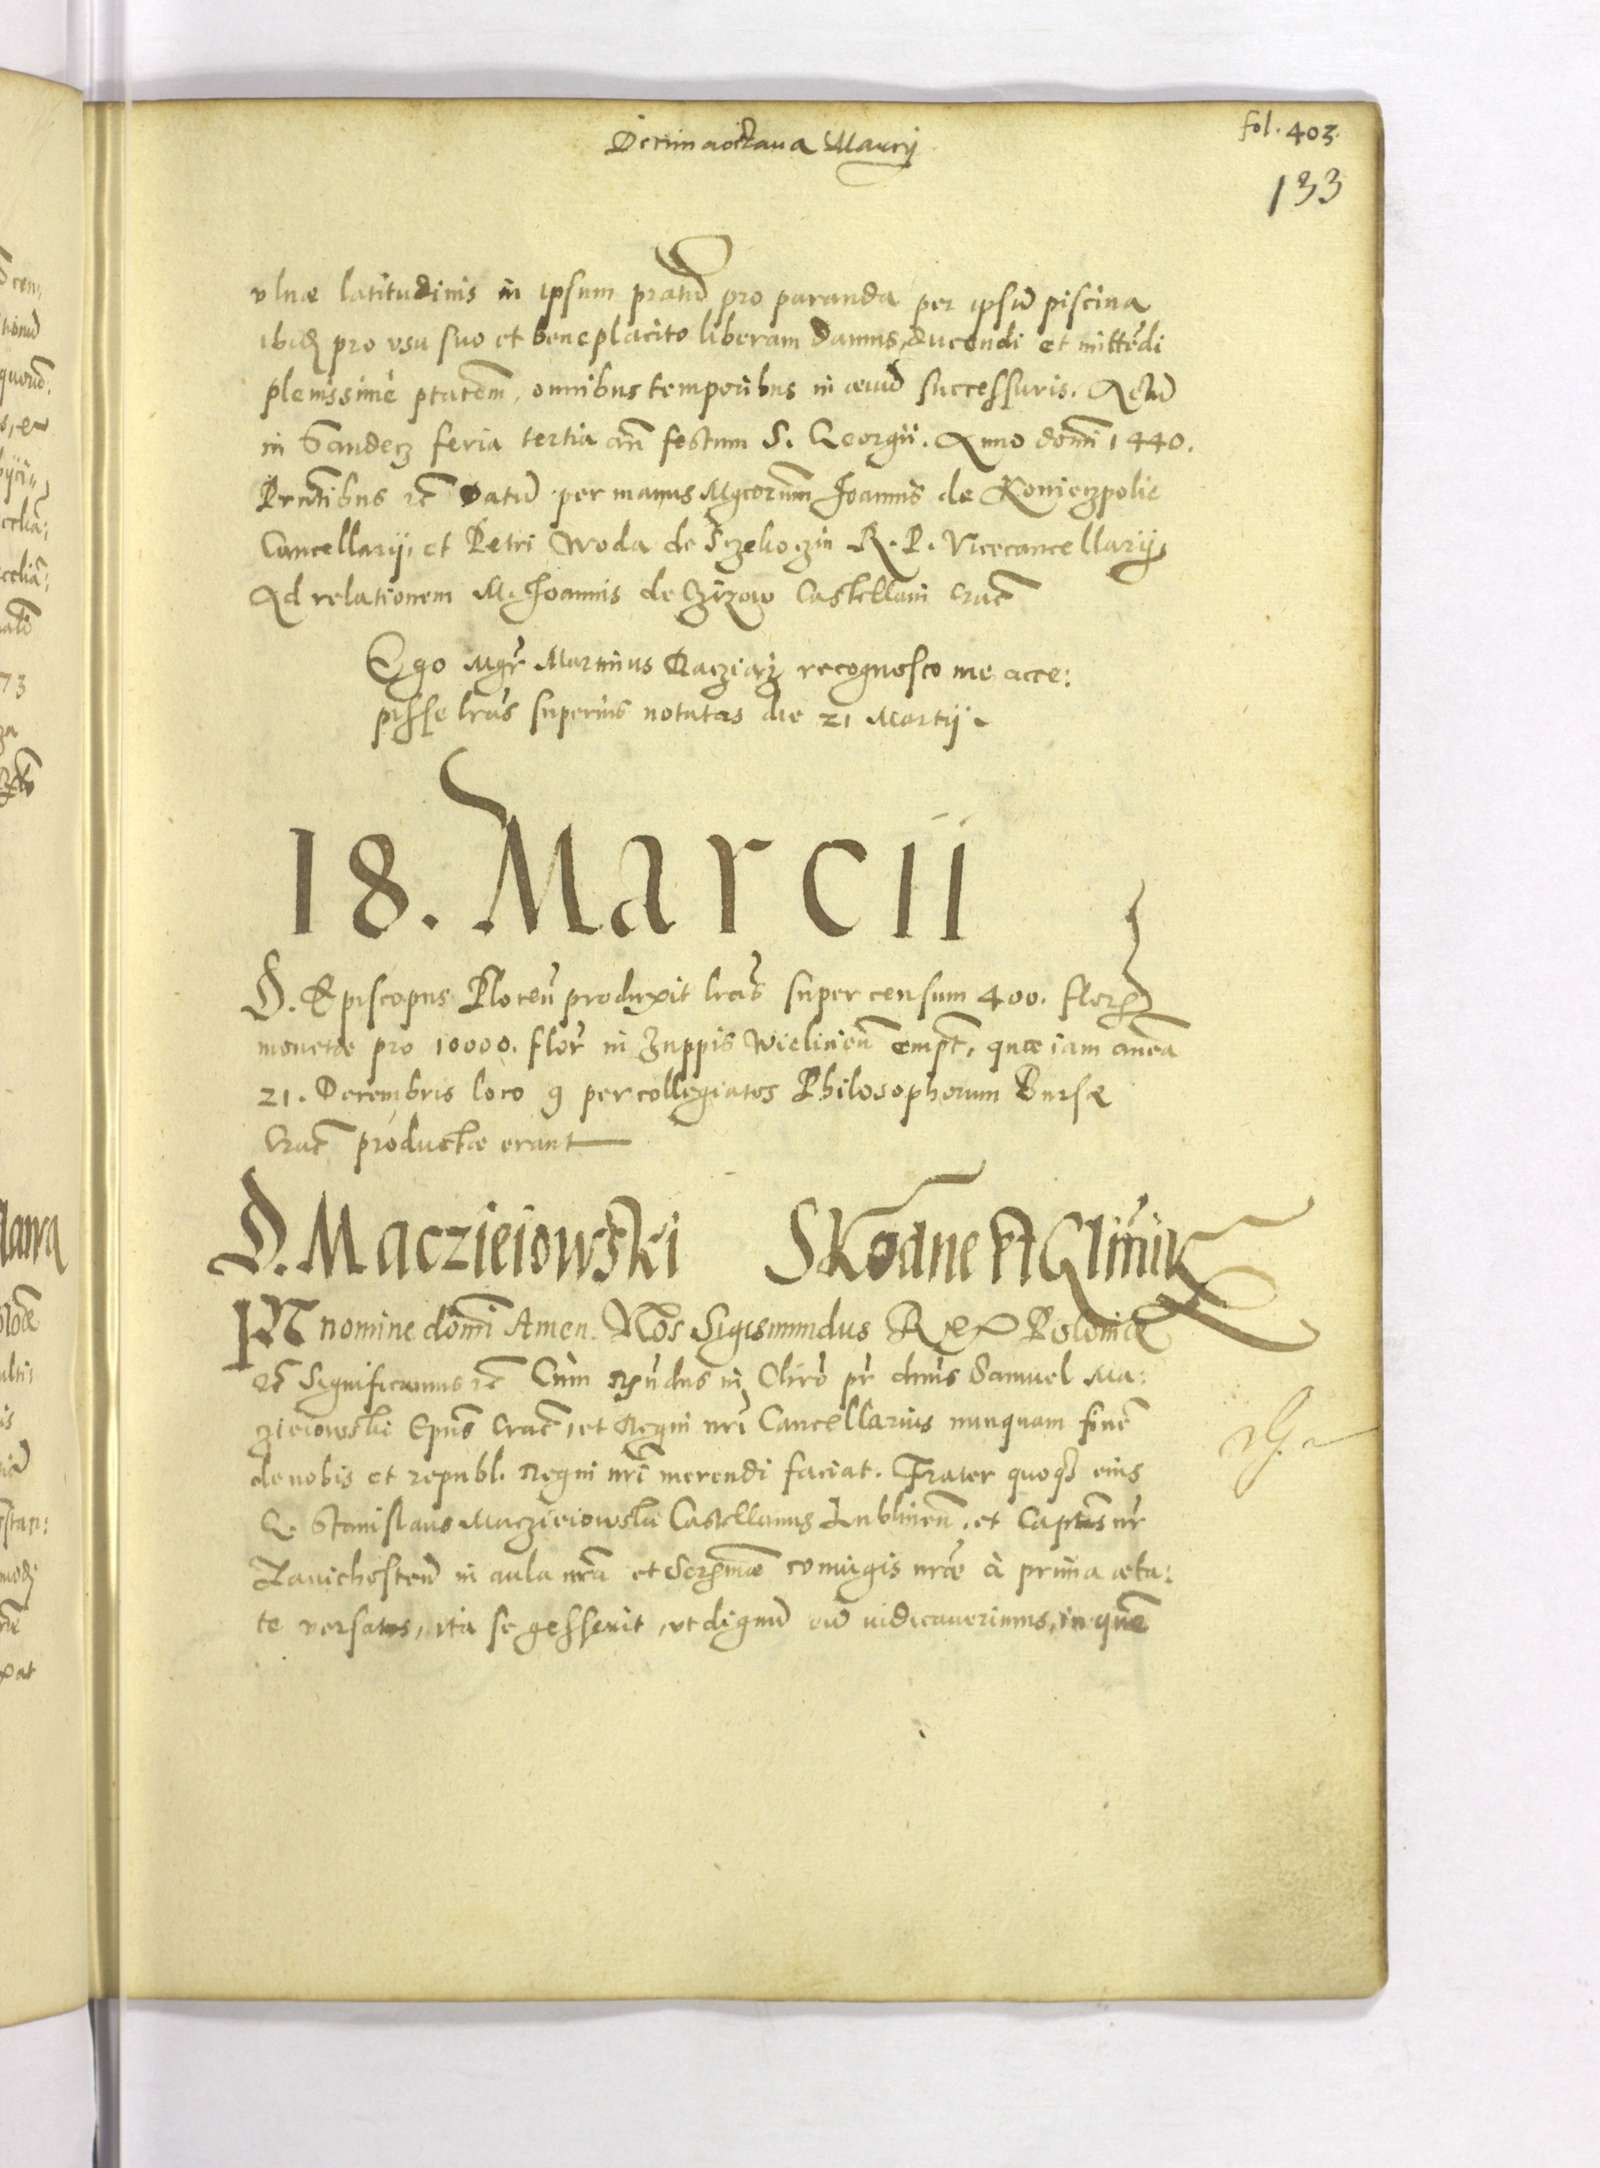 Decimaoctaua Marcij
fol. 403.
133
vlnæ latitudinis in ipsum pratũ pro paranda per ipsũ piscina
ibid pro vsu suo et beneplacito liberam damus, ducendi et mittẽdi
plenissime ptatem, omnibus temporibus in æuũ successuris. Actũ
in Sandecz feria tertia añ festum S. Georgii. Anno domi 1440.
Prntibus etc Datũ per manus Mgcorum Joannis de Konieczpolie
Cancellarij, et Petri Woda de Sczekoczin R. P. Vicecancellarij,
Ad relationem M. Joannis de Czizow Castellani Crac
Ego Mgr Martinus recognosco me acce:
pisse lras superius notatas die 21 Martij.
18. Marcii
D. Episcopus Plocen produxit lras super censum 400. flor
monetæ pro 10000. flor in Zuppis Wielicien empt, quæ iam antea
21. Decembris loco 9 per collegiatos Philosophorum Bursæ
Crac productæ erant
D. Maczieiowski
IN nomine domi Amen. Nos Sigismundus Rex Poloniæ
etc Significamus etc Cùm Rṅdus in Chro pr dnus Samuel Ma:
zieiowski Epus Crac, et Regni nri Cancellarius nunquam finẽ
de nobis et republ. Regni nri merendi faciat. Frater quoq eius
G. Stanislaus Maczieiowski Castellanus Lublinen, et Captus nr
Zauichosten in aula nra et Sermæ coniugis nræ à prima æta:
te versatus, ita se gesserit, vt dignũ eũ iudicauerimus, in quẽ